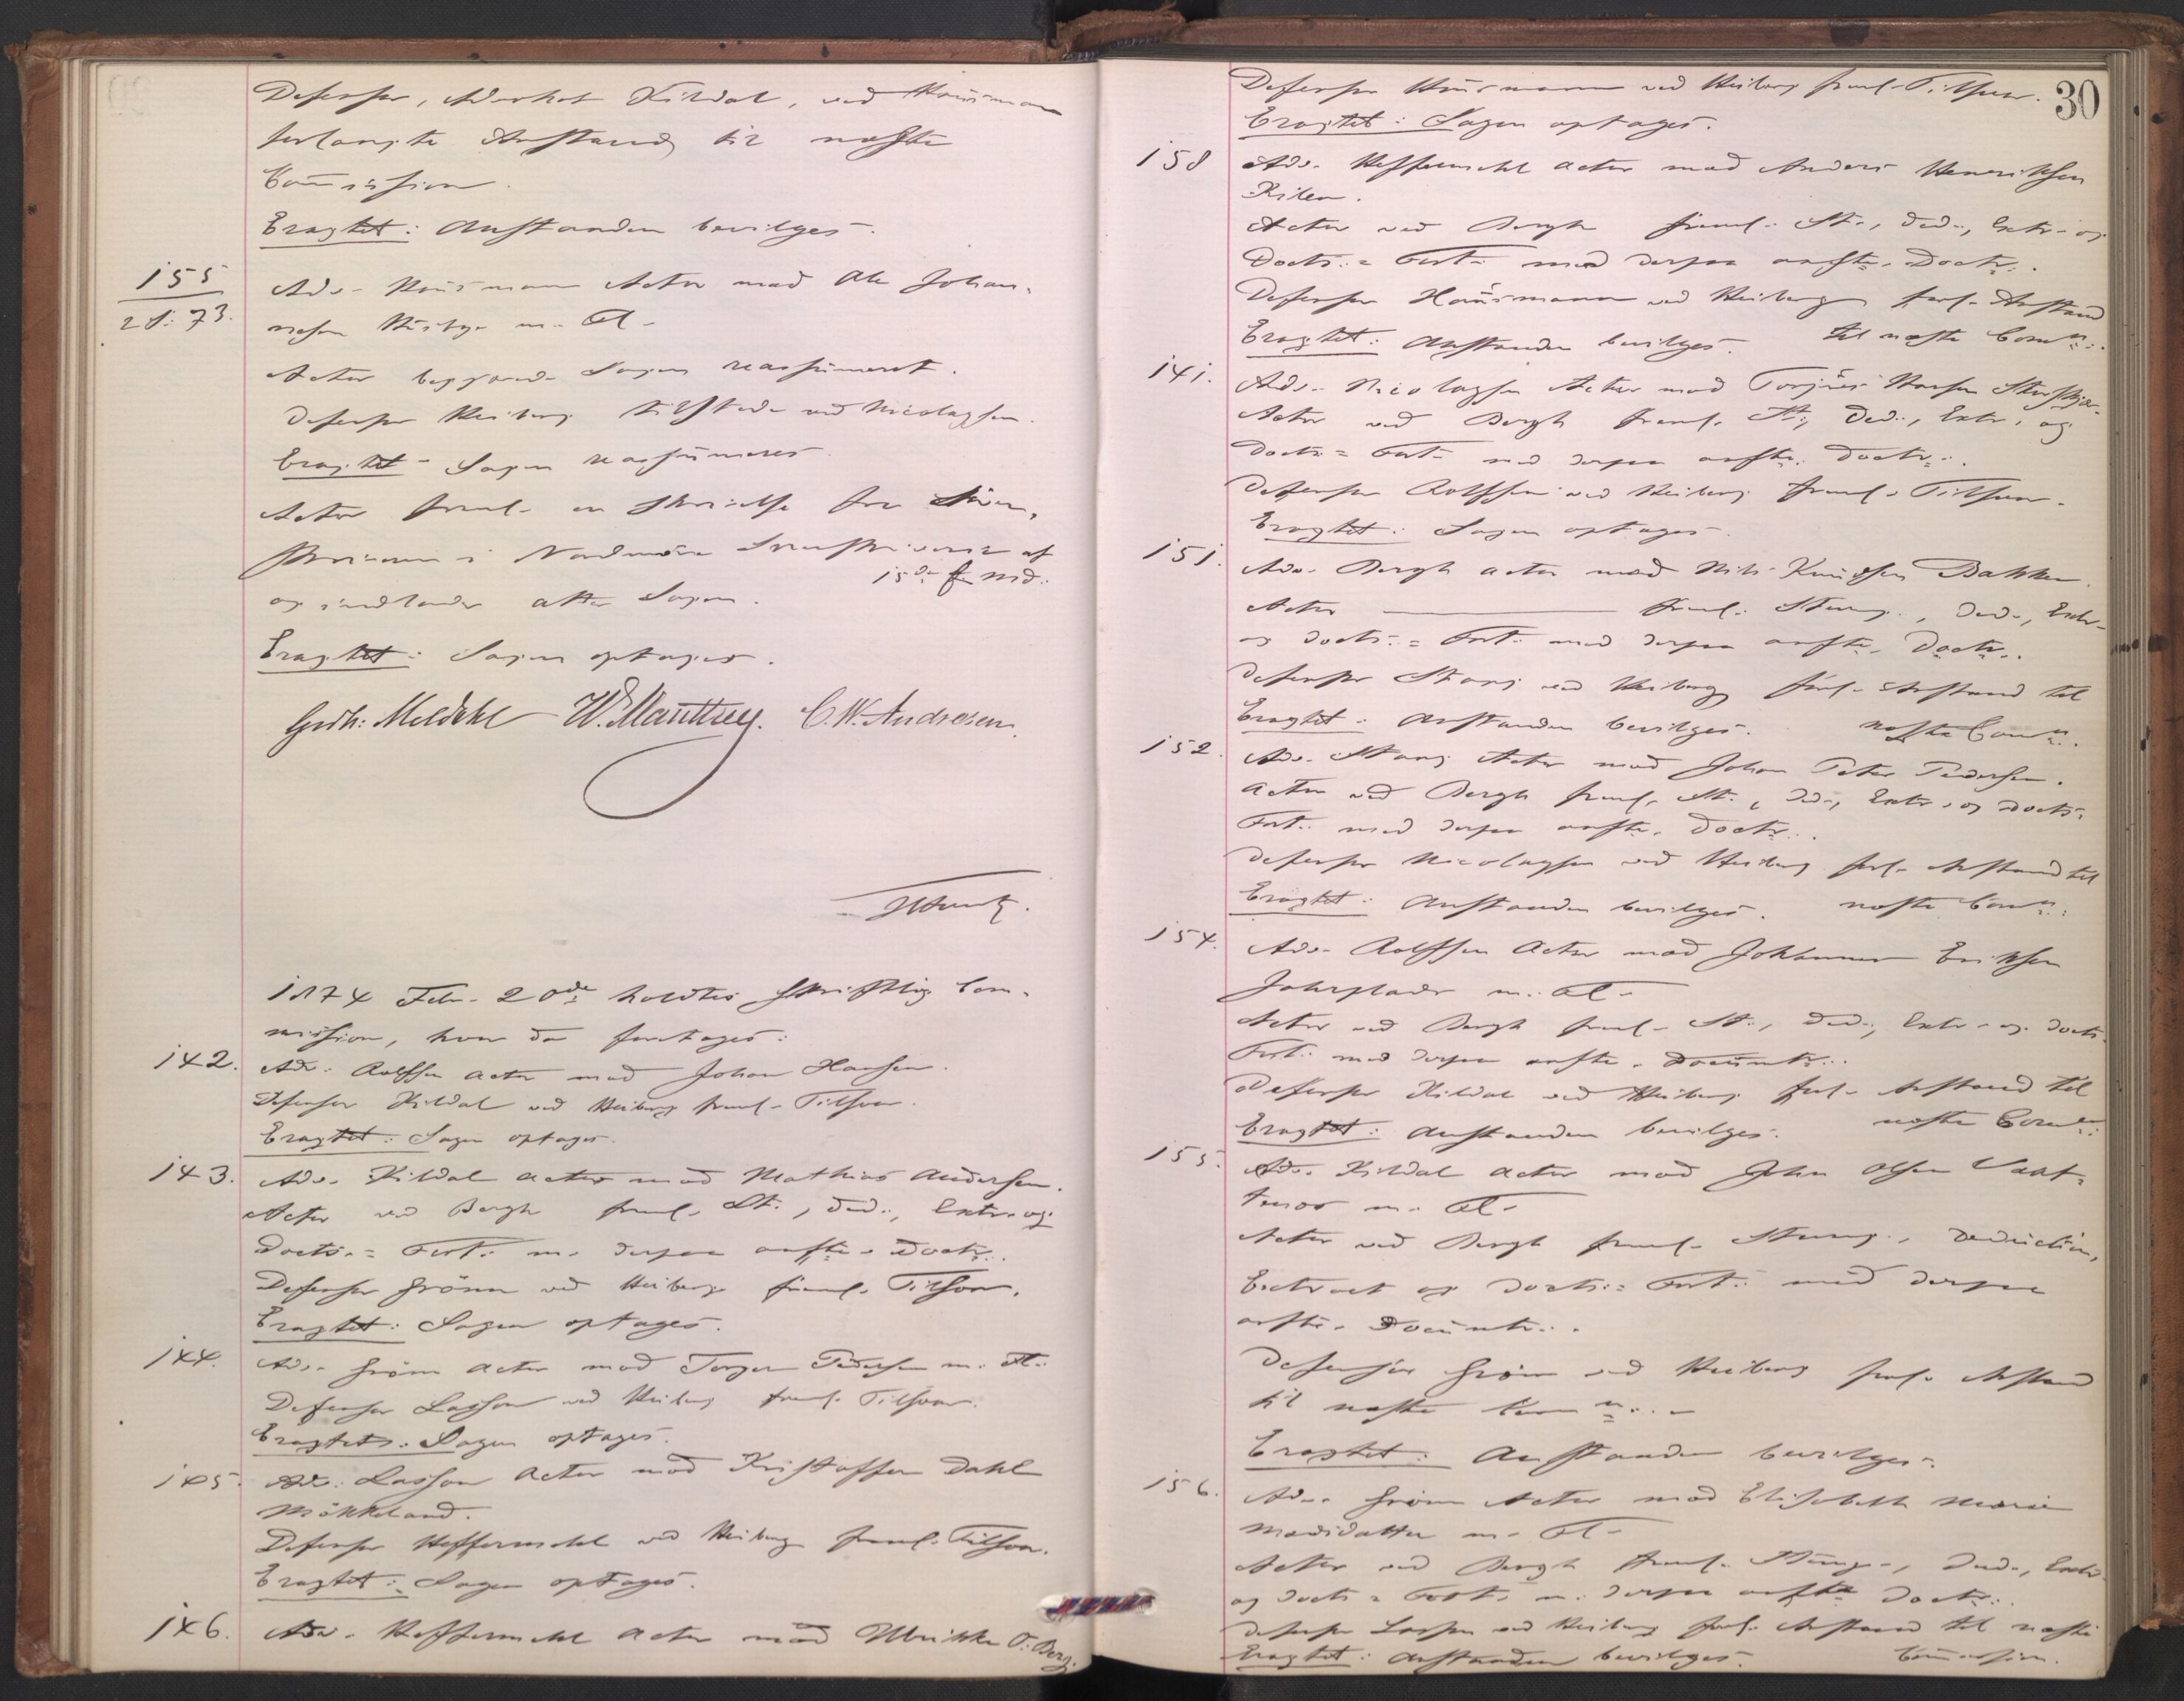 Defensor, Advokat Kildal, ved Hansmann
forlangte Anstand til næste
Commission.
Eragtet: Anstanden bevilges.
155
28: 73.
Adv. Hansmann Actor mod Ole Johan-
nesen m. Fl.
Actor begjærede Sagen reassumeret.
Defensor Heiberg tilstede ved Nicolaysen.
Eragtet Sagen reassumeres.
Actor freml. en Skrivelse fra Soren-
skriveren i Nordmøre Sorenskriveri af
15de f. Md.
og indlader atter Sagen.
Eragtet: Sagen optages.
Grdh: Meldahl W. Manthey. C. W. Andresen.
1874 Febr. 20de holdtes skriftlig Com-
mission, hvor da foretages:
142. Adv. Rolfsen Actor mod Johan Hansen.
Defensor Kildal ved Heiberg freml. Tilsvar.
Eragtet: Sagen optages.
143. Adv. Kildal Actor mod Mathias Andersen.
Actor ved Bergh freml. St., Ded., Extr. og
Docts. = Fort. m. derpaa anførte Doctr.
Defensor Gröm ved Heiberg freml. Tilsvar.
Eragtet: Sagen optages.
144. Adv. Gröm Actor mod Torger Pedersen m. Fl.
Defensor Lasson ved Heiberg freml. Tilsvar.
Eragtet: Sagen optages.
145. Adv. Lasson Actor mod Kristoffer Dahl
Mökkeland.
Defensor Heffermehl ved Heiberg freml. Tilsvar.
Eragtet: Sagen optages.
146. Adv. Heffermehl Actor mod Ulrikke O. Berg.
30
Defensor Hansmann ved Heiberg freml. Tilsvar.
Eragtet: Sagen optages.
158 Adv. Heffermehl Actor mod Anders Henriksen
Kilen.
Actor ved Bergh freml. St., Ded., Extr. og
Docts. = Fort. med derpaa anførte Doctr.
Defensor Hansmann ved Heiberg forl. Anstand
Eragtet: Anstanden bevilges. til næste Comn.
141. Adv. Nicolaysen Actor mod
Actor ved Bergh freml. St., Ded., Extr. og
Docts = Fort. med derpaa anførte Doctr.
Defensor Rolfsen ved Heiberg freml. Tilsvar.
Eragtet: Sagen optages.
151. Adv. Bergh Actor mod Nils Knudsen Bakken.
Actor freml. Stevng., Ded., Extr.
og Docts. = Fort. med derpaa anførte Doctr.
Defensor Stang ved Heiberg forl. Anstand til
Eragtet: Anstanden bevilges. næste Comn.
152. Adv. Stang Actor mod Johan Peter Pedersen.
Actor ved Bergh freml. St., Ded., Extr. og Docts.
Fort. med derpaa anførte Doctr.
Defensor Nicolaysen ved Heiberg forl. Anstand til
Eragtet: Anstanden bevilges. næste Comn.
154. Adv. Rolfsen Actor mod Johannes Eriksen
m. Fl.
Actor ved Bergh freml. St., Ded., Extr. og Docts.
Fort. med derpaa anførte Documtr.
Defensor Kildal ved Heiberg forl. Anstand til
Eragtet: Anstanden bevilges. næste Comn.
155. Adv. Kildal Actor mod John Olsen
m. Fl.
Actor ved Bergh freml. Stevng., Deduction,
Extract og Docts. = Fort. med derpaa
anførte Documtr.
Defensor Gröm ved Heiberg forl. Anstand
til næste Comn.
Eragtet: Anstanden bevilges.
156. Adv. Gröm Actor mod Elisabeth Marie
m. Fl.
Actor ved Bergh freml. Stevng., Ded., Extr.
og Docts = Fort. m. derpaa anførte Doctr.
Defensor Lasson ved Heiberg forl. Anstand til næste
Eragtet: Anstanden bevilges. Commission.